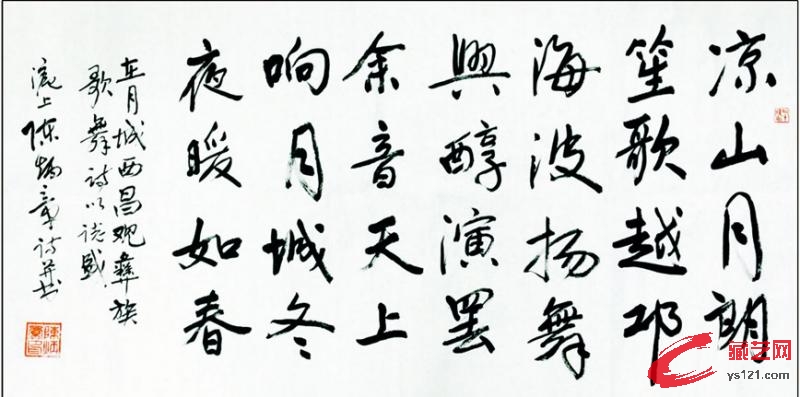 凉山月朗
笙歌越邛
海波扬舞
興醇演罢
余音天上
响月城冬
夜暖如春
在月城西昌观彝族
歌舞诗以誌盛
滬上陈炳章诗并书
藏艺网
ys121.com